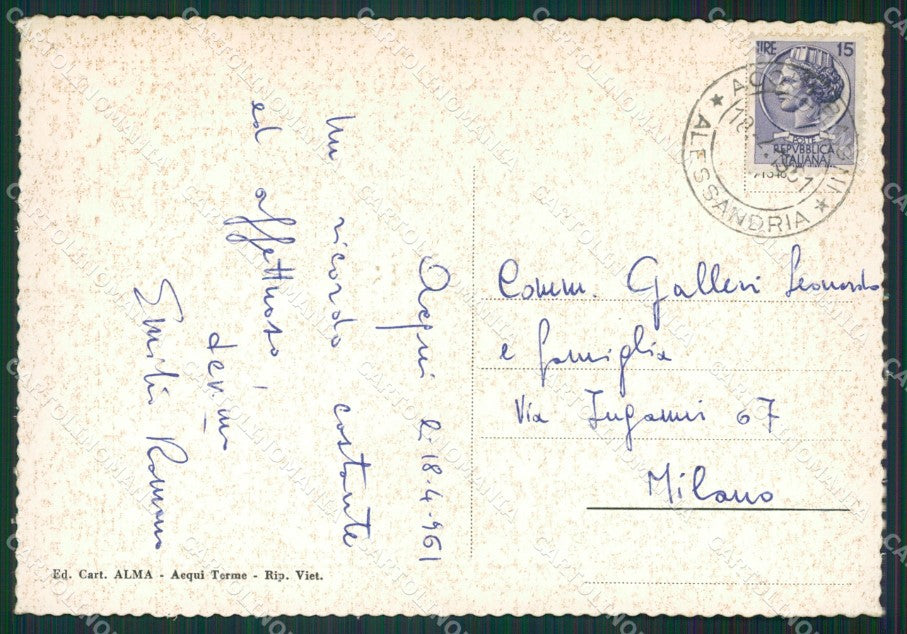 Acqui li 18-4-961
Un ricordo costante
ed affettuoso,
Emilio Romano
LIRE 15
POSTE
REPVBBLICA
ITALIANA
ALESSANDRIA
Comm. Galleri Leonardo
e famiglia
Via Inganni 67
Milano
Ed. Cart. ALMA - Acqui Terme - Rip. Viet.
CARTOLINOMANIA